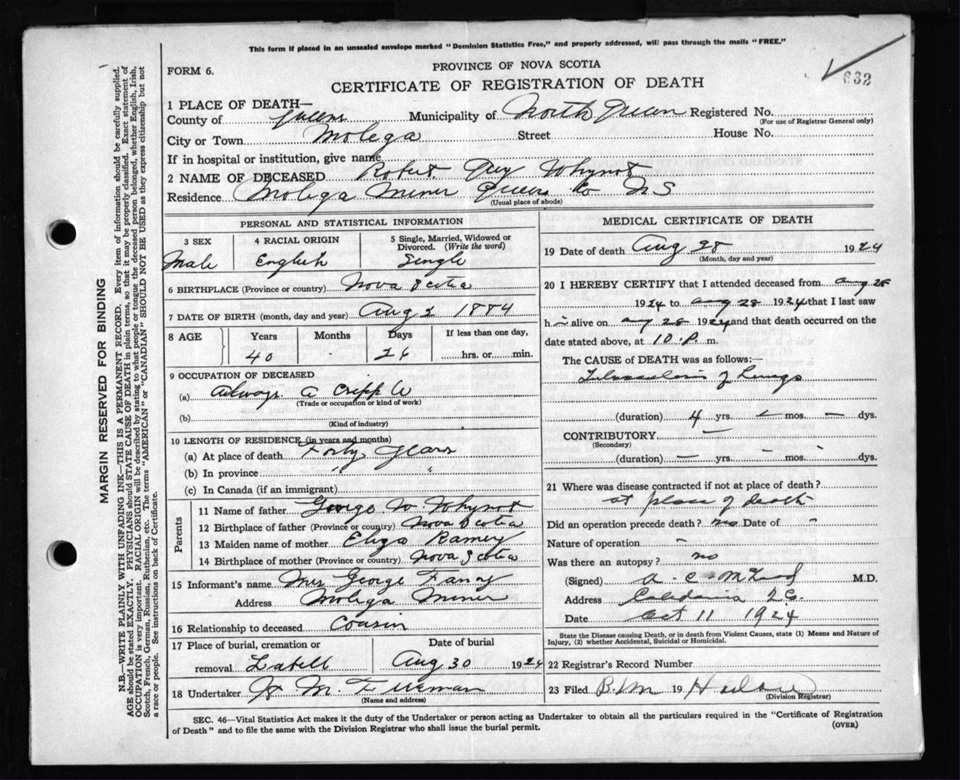 This form if placed in an unsealed envelope marked "Dominion Statistics Free," and properly addressed, will pass through the mails "FREE."
FORM 6.
PROVINCE OF NOVA SCOTIA
632
CERTIFICATE OF REGISTRATION OF DEATH
1 PLACE OF DEATH—
County of Queens Municipality of North Queen Registered No.
(For use of Registrar General only)
City or Town Molega Street House No.
If in hospital or institution, give name
2 NAME OF DECEASED Robert Whynot
Residence Molega Mines Queens Co N S
(Usual place of abode)
PERSONAL AND STATISTICAL INFORMATION
3 SEX 4 RACIAL ORIGIN 5 Single, Married, Widowed or Divorced. (Write the word)
Male English Single
6 BIRTHPLACE (Province or country) Nova Scotia
7 DATE OF BIRTH (month, day and year) Aug 2 1884
8 AGE Years Months Days If less than one day,
40 26 hrs. or min.
9 OCCUPATION OF DECEASED
(a) Always a
(Trade or occupation or kind of work)
(b)
(Kind of industry)
10 LENGTH OF RESIDENCE (in years and months)
(a) At place of death Forty years
(b) In province " "
(c) In Canada (if an immigrant)
Parents
11 Name of father George W Whynot
12 Birthplace of father (Province or country) Nova Scotia
13 Maiden name of mother Eliza Ramey
14 Birthplace of mother (Province or country) Nova Scotia
15 Informant's name Mrs George
Address Molega Mines
16 Relationship to deceased Cousin
17 Place of burial, cremation or removal Date of burial
Aug 30 1924
18 Undertaker
(Name and address)
MEDICAL CERTIFICATE OF DEATH
19 Date of death Aug 28 1924
(Month, day and year)
20 I HEREBY CERTIFY that I attended deceased from Aug 28
1924 to Aug 28 1924 that I last saw
h alive on Aug 28 1924 and that death occurred on the
date stated above, at 10 P. m.
The CAUSE OF DEATH was as follows:
Tuberculosis of Lungs
(duration) 4 yrs. — mos. — dys.
CONTRIBUTORY —
(Secondary)
(duration) — yrs. — mos. — dys.
21 Where was disease contracted if not at place of death?
at place of death
Did an operation precede death? no Date of
Nature of operation
Was there an autopsy? no
(Signed) A. C. M.D.
Address Caledonia
Date Oct 11 1924
State the Disease causing Death, or in death from Violent Causes, state (1) Means and Nature of
Injury, (2) whether Accidental, Suicidal or Homicidal.
22 Registrar's Record Number
23 Filed 19
(Division Registrar)
SEC. 46—Vital Statistics Act makes it the duty of the Undertaker or person acting as Undertaker to obtain all the particulars required in the "Certificate of Registration
of Death" and to file the same with the Division Registrar who shall issue the burial permit.
(OVER)
MARGIN RESERVED FOR BINDING
N.B.—WRITE PLAINLY WITH UNFADING INK—THIS IS A PERMANENT RECORD. Every item of information should be carefully supplied.
AGE should be stated EXACTLY. PHYSICIANS should STATE CAUSE OF DEATH in plain terms, so that it may be properly classified. Exact statement of
OCCUPATION is very important. RACIAL ORIGIN will be described by stating to what people or tongue the deceased person belonged, whether English, Irish,
Scotch, French, German, Russian, Ruthenian, etc. The terms "AMERICAN" or "CANADIAN" SHOULD NOT BE USED as they express citizenship but not
a race or people. See instructions on back of Certificate.